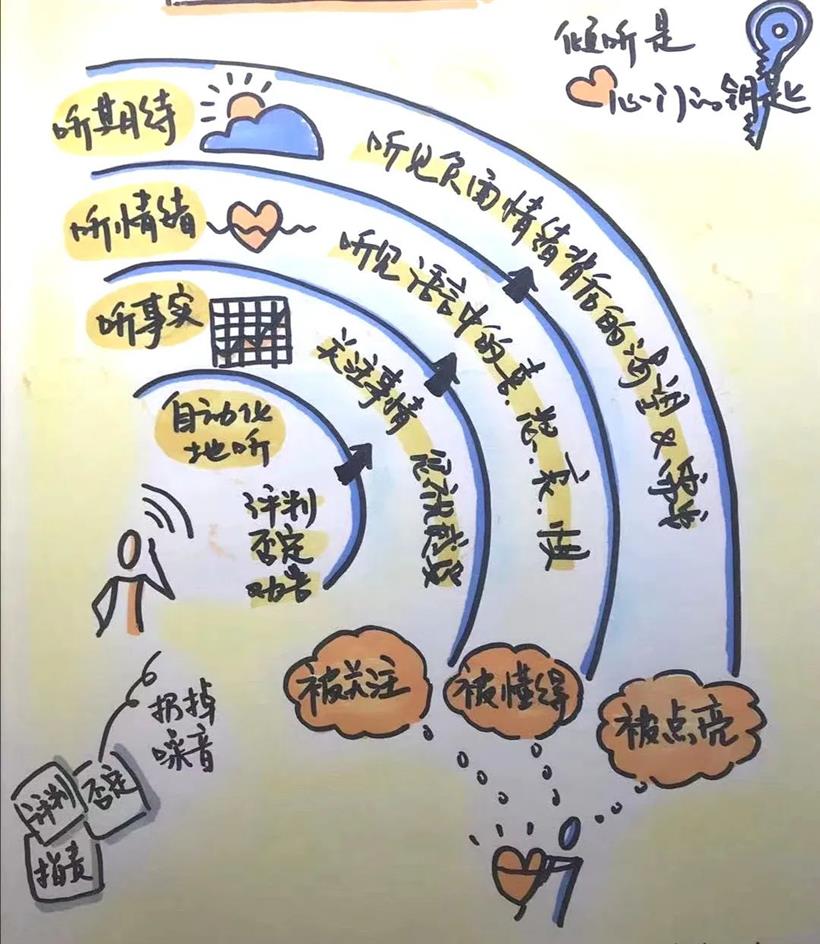 倾听是
心门的钥匙
听期待
听见负面情绪背后的渴望&需求
听情绪
听见语言中的喜.怒.哀.惧
听事实
关注事情 忽视感受
自动化
地听
评判
否定
劝告
扔掉
噪音
评判
否定
指责
被关注
被懂得
被点亮